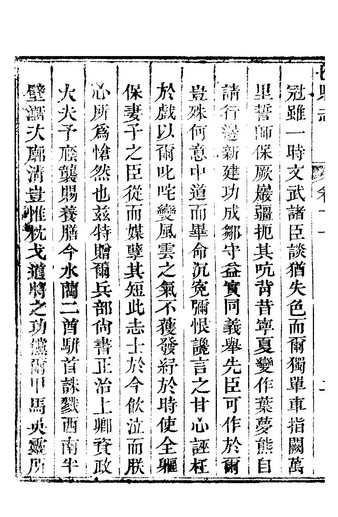 冠雖一時文武諸臣談猶失色而爾獨單車指闕萬
里誓師保厥巖疆扼其吭背昔寧夏變作葉夢熊自
請行邊新建功成鄒守益實同義舉先臣可作於爾
豈殊何意中道而畢命沉寃彌恨讒言之甘心誣枉
於戲以爾叱咤變風雲之氣不獲發紓於時使全軀
保妻子之臣從而媒孽其短此志士於今飲泣而朕
心所爲愴然也兹特贈爾兵部尚書正治上卿資政
大夫予廕襲賜養膳今水藺二酋駢首誅戮西南半
壁大廓清豈惟枕戈遣將之功儻爾甲馬英靈所